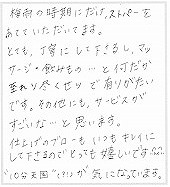 梅雨の時期にだけ、ストパーを
あてていただいてます。
とても、丁寧にして下さるし、マッ
サージ・飲みもの…と何だか
至れり尽くせりで有りがたい
です。その他にも、サービスが
すごいな…と思います。
仕上げのブローもいつもキレイに
して下さるのでとっても嬉しいです
"10分天国"(?!)が気になっています。